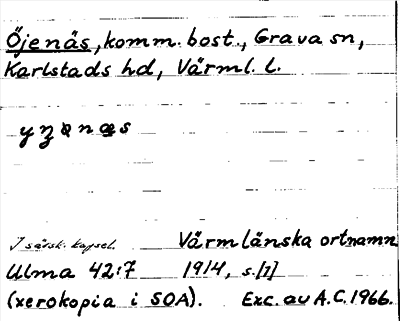 Öjenäs, komm. bost., Grava sn,
Karlstads hd, Värml. l.
I särsk. kapsel. Värmlänska ortnamn
Ulma 42:7 1914, s. [1]
(xerokopia i SOA). Exc. av A.C. 1966.